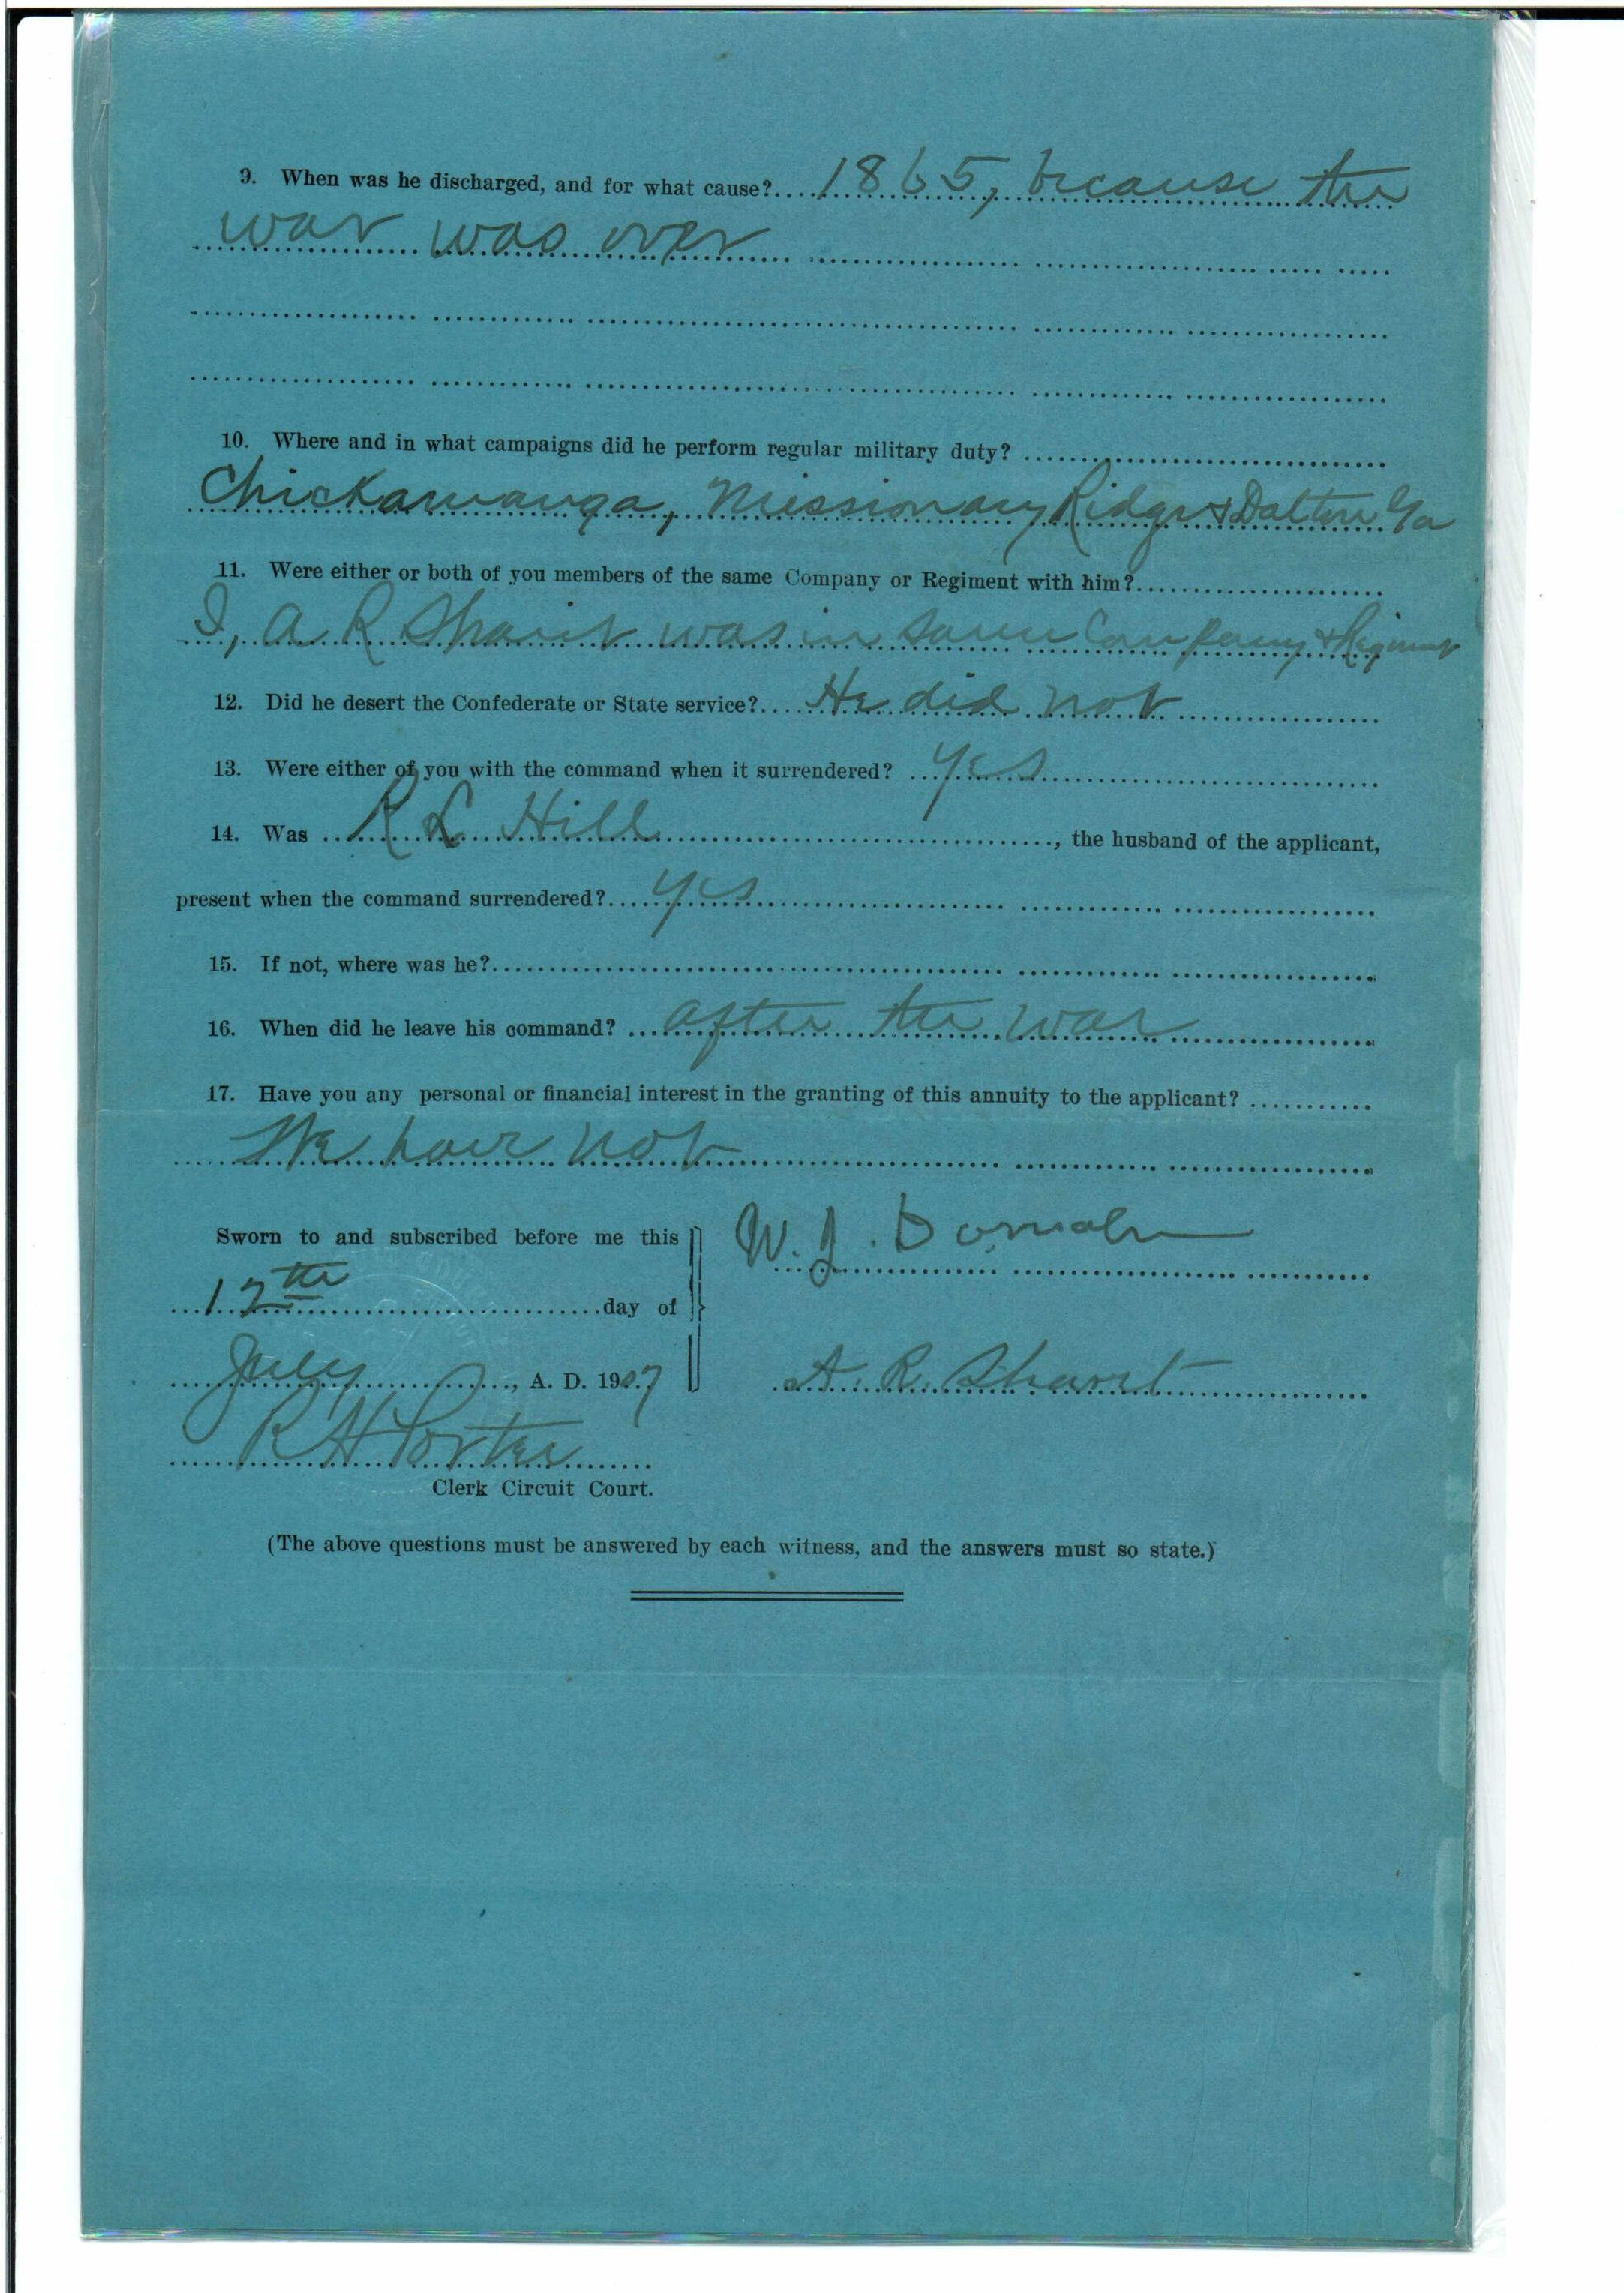 9. When was he discharged, and for what cause? 1865, because the
war was over
10. Where and in what campaigns did he perform regular military duty?
Chickamauga, Missionary Ridge & Dalton Ga
11. Were either or both of you members of the same Company or Regiment with him?
I, A R was in same Company & Regiment
12. Did he desert the Confederate or State service? He did not
13. Were either of you with the command when it surrendered? yes
14. Was R L Hill, the husband of the applicant,
present when the command surrendered? yes
15. If not, where was he?
16. When did he leave his command? after the war
17. Have you any personal or financial interest in the granting of this annuity to the applicant?
We have not
Sworn to and subscribed before me this
W. J.
12th day of
July, A. D. 1907
A. R.
R H Porter
Clerk Circuit Court.
(The above questions must be answered by each witness, and the answers must so state.)